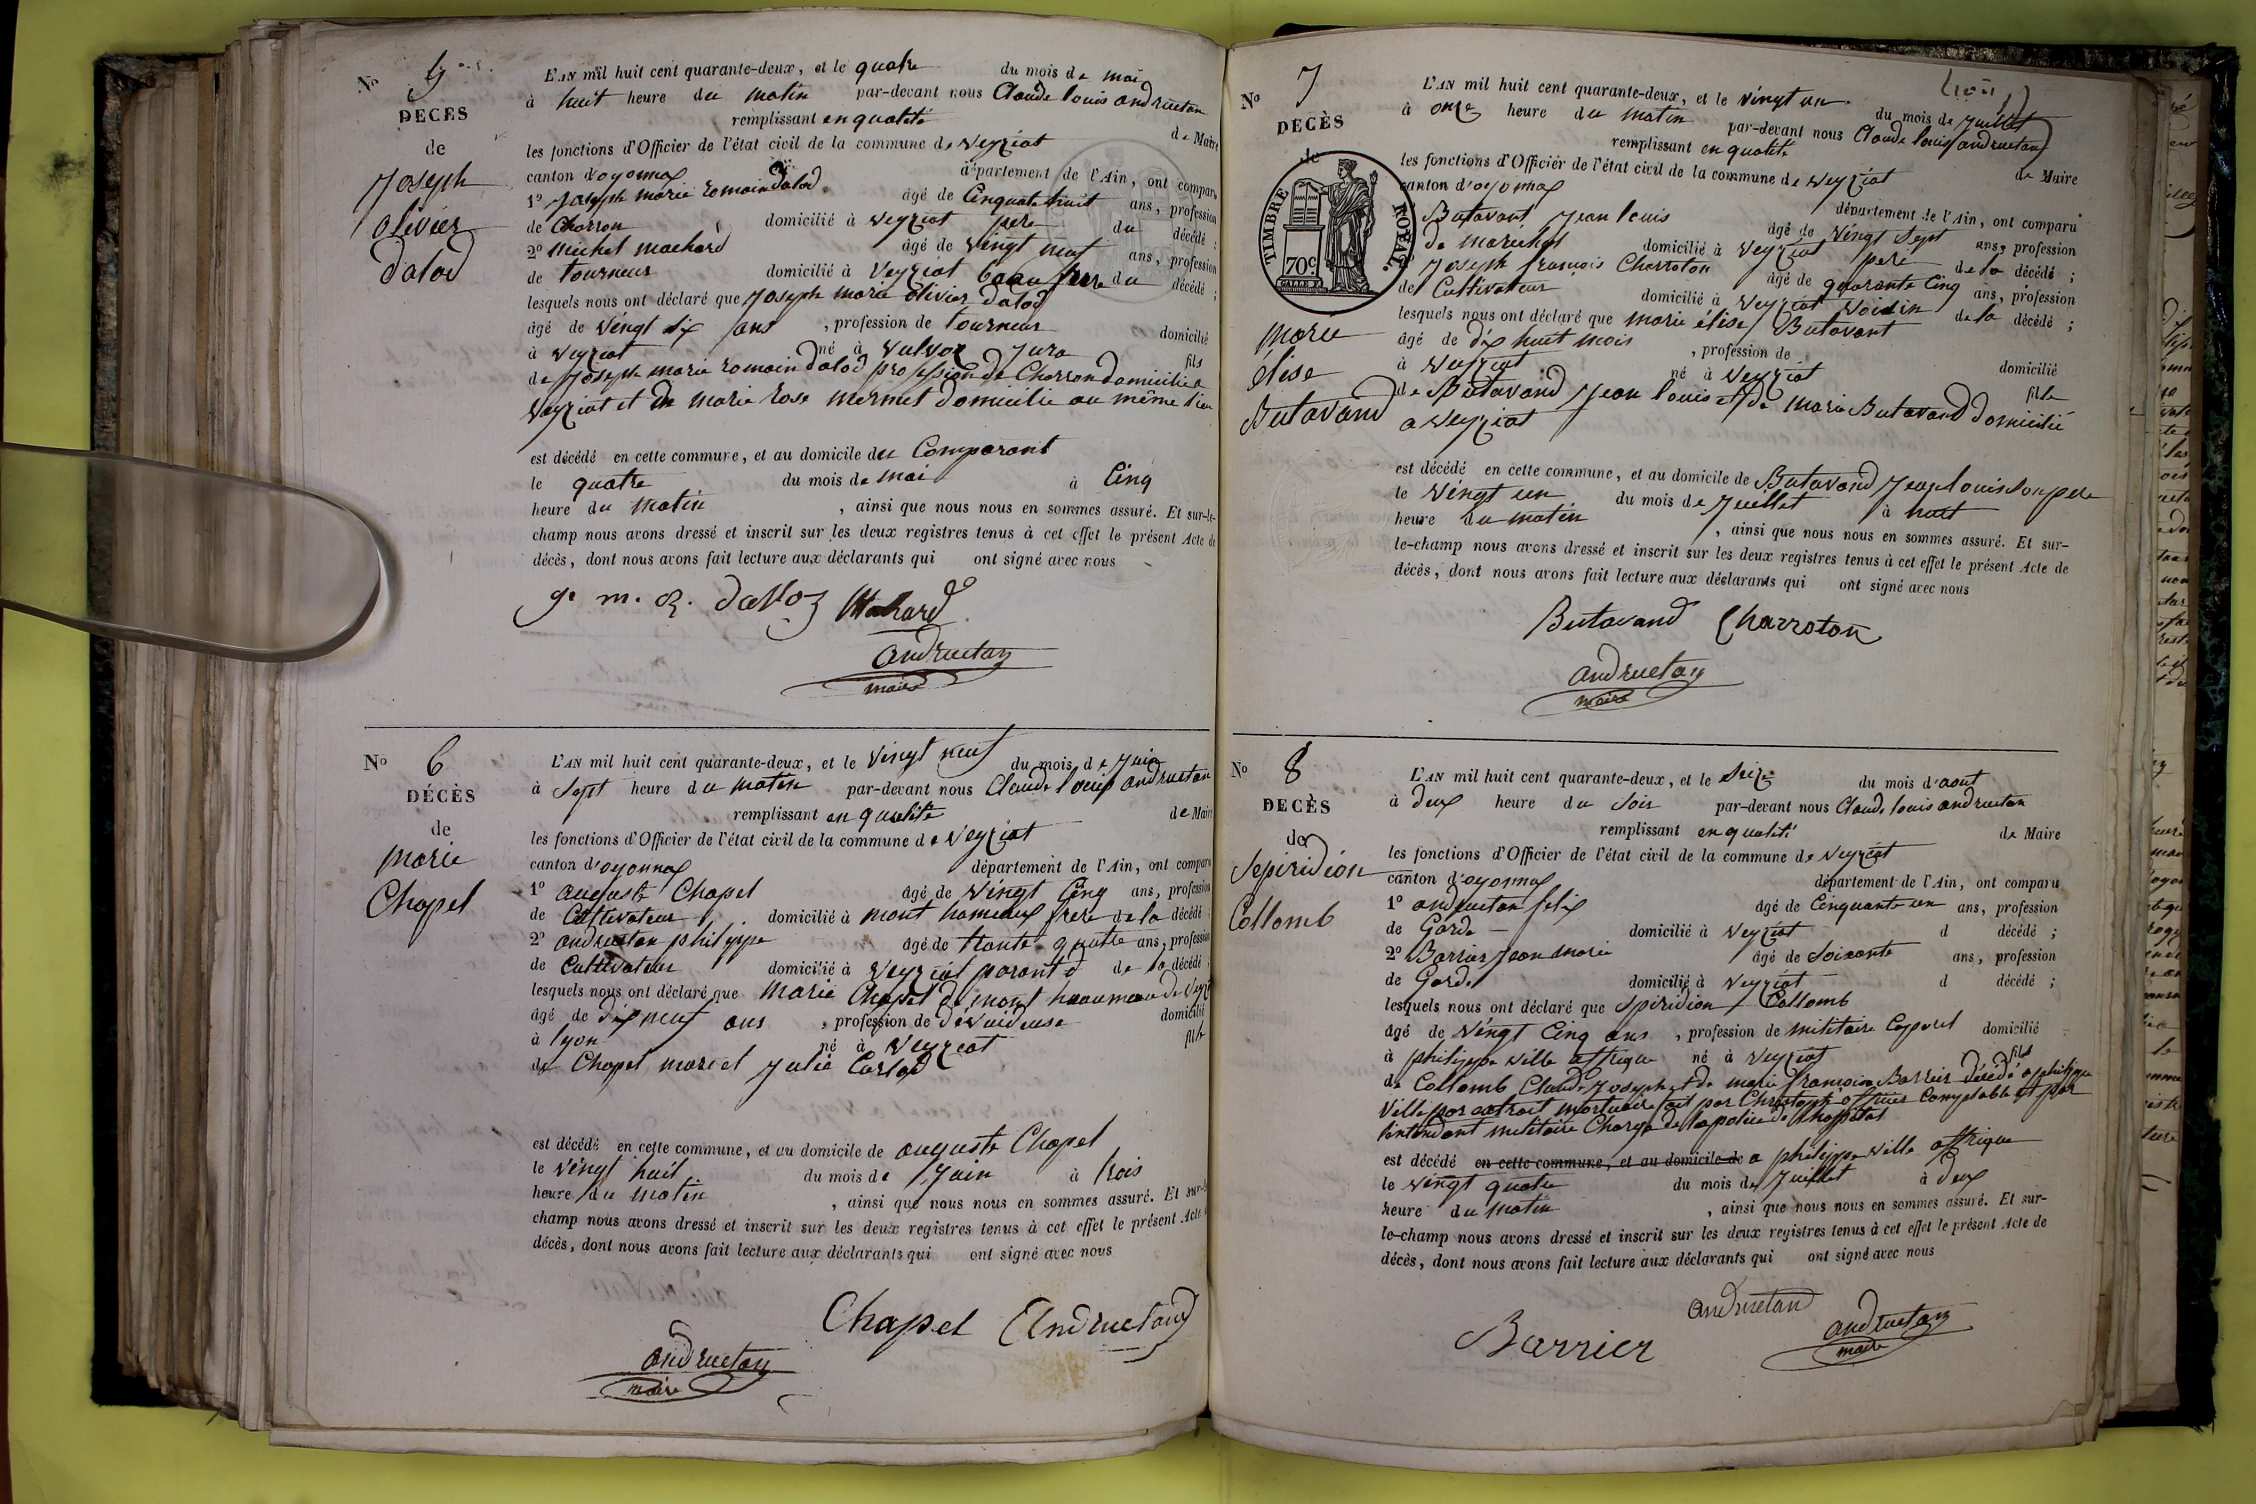 No 5
DECES
de
Joseph
olivier
dalod
L'AN mil huit cent quarante-deux, et le quatre du mois de mai
à huit heure du matin par-devant nous Claude louis andruetan
remplissant en qualité de Maire
les fonctions d'Officier de l'état civil de la commune de veyziat
canton d'oyonnax département de l'Ain, ont comparu
1º Joseph marie romain dalod âgé de Cinquante huit ans, profession
de Charron domicilié à veyziat pere du décédé ;
2º michel machard âgé de vingt neuf ans, profession
de tourneur domicilié à veyziat beau frere du décédé ;
lesquels nous ont déclaré que Joseph marie olivier dalod
âgé de vingt six ans , profession de tourneur domicilié
à veyziat né à vulvoz Jura fils
de Joseph marie romain dalod profession de Charron domicilié a
veyziat et de marie rose mermet domicilié au même lieu
est décédé en cette commune, et au domicile du Comparant
le quatre du mois de mai à Cinq
heure du matin , ainsi que nous nous en sommes assuré. Et sur-le-
champ nous avons dressé et inscrit sur les deux registres tenus à cet effet le présent Acte de
décès, dont nous avons fait lecture aux déclarants qui ont signé avec nous
j. m. R. dalloz Machard
andruetan
maire
No 6
DÉCÈS
de
marie
Chapel
L'AN mil huit cent quarante-deux, et le vingt neuf du mois de Juin
à Sept heure du matin par-devant nous Claude louis andruetan
remplissant en qualité de Maire
les fonctions d'Officier de l'état civil de la commune de veyziat
canton d'oyonnax département de l'Ain, ont comparu
1º auguste Chapel âgé de vingt Cinq ans, profession
de Cultivateur domicilié à mont hameaux frere de la décédé
2º andruetan philippe âgé de trante quatre ans, profession
de Cultivateur domicilié à veyziat parant d de la décédé
lesquels nous ont déclaré que marie Chapel de mont
âgé de dix neuf ans , profession de dévuideuse domicilié
à lyon né à veyziat fille
de Chapel marc et Julie Carlod
est décédé en cette commune, et au domicile de auguste Chapel
le vingt huit du mois de Juin à trois
heure du matin , ainsi que nous nous en sommes assuré. Et sur-le-
champ nous avons dressé et inscrit sur les deux registres tenus à cet effet le présent Acte
décès, dont nous avons fait lecture aux déclarants qui ont signé avec nous
Chapel Andruetan
andruetan
maire
No 7
DECÈS
de
TIMBRE ROYAL.
70c
marie
élise
Butavand
L'AN mil huit cent quarante-deux, et le vingt un du mois de Juillet
à onze heure du matin par-devant nous Claude louis andruetan
remplissant en qualité de Maire
les fonctions d'Officier de l'état civil de la commune de veyziat
canton d'oyonnax département de l'Ain, ont comparu
Butavant Jean louis âgé de vingt Sept ans, profession
de maréchal domicilié à veyziat pere de la décédé ;
Joseph françois Charroton âgé de quarante Cinq ans, profession
de Cultivateur domicilié à veyziat voisin de la décédé ;
lesquels nous ont déclaré que marie élise Butavant
âgé de dix huit mois , profession de domicilié
à veyziat né à veyziat fille
de Butavand Jean louis et de marie Butavand domicilié
a veyziat
est décédé en cette commune, et au domicile de Butavand Jean louis son pere
le vingt un du mois de Juillet à huit
heure du matin , ainsi que nous nous en sommes assuré. Et sur-
le-champ nous avons dressé et inscrit sur les deux registres tenus à cet effet le présent Acte de
décès, dont nous avons fait lecture aux déclarants qui ont signé avec nous
Butavand Charroton
andruetan
maire
No 8
DECÈS
de
Sepiridion
Collomb
L'AN mil huit cent quarante-deux, et le Seize du mois d'aout
à deux heure du Soir par-devant nous Claude louis andruetan
remplissant en qualité de Maire
les fonctions d'Officier de l'état civil de la commune de veyziat
canton d'oyonnax département de l'Ain, ont comparu
1º andruetan felix âgé de Cinquante un ans, profession
de Garde domicilié à veyziat d décédé ;
2º Barrier Jean marie âgé de Soixante ans, profession
de Garde domicilié à veyziat d décédé ;
lesquels nous ont déclaré que Spiridion Collomb
âgé de vingt Cinq ans , profession de militaire Caporal domicilié
à philippe ville affrique né à veyziat fils
de Collomb Claude Joseph et de marie françoise Barrier décédé a philippe
ville par extrait mortuaire fait par Christophe officier Comptable et par
l'intendant militaire Chargé de la police de l'hopital
est décédé en cette commune, et au domicile de a philippe ville affrique
le vingt quatre du mois de Juillet à deux
heure du matin , ainsi que nous nous en sommes assuré. Et sur-
le-champ nous avons dressé et inscrit sur les deux registres tenus à cet effet le présent Acte de
décès, dont nous avons fait lecture aux déclarants qui ont signé avec nous
andruetan
Barrier andruetan
maire